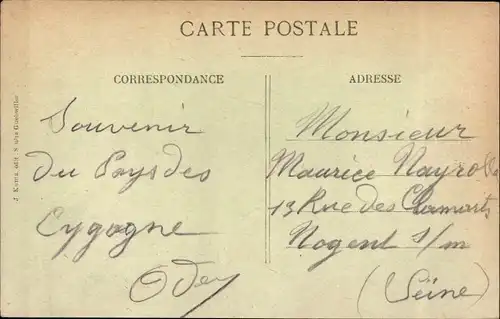 CARTE POSTALE
CORRESPONDANCE
ADRESSE
Souvenir
du Pays des
Cygogne
Odey
Monsieur
Maurice Nayrolle
13 Rue des Clamarts
Nogent s/m
(Seine)